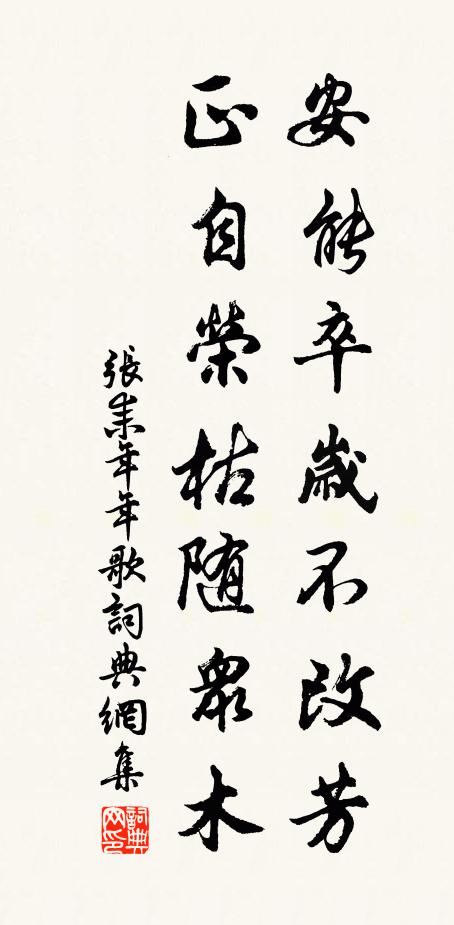 安能卒歲不改芳
正自榮枯随眾木
張耒年年歌詞典網集
詞典网印